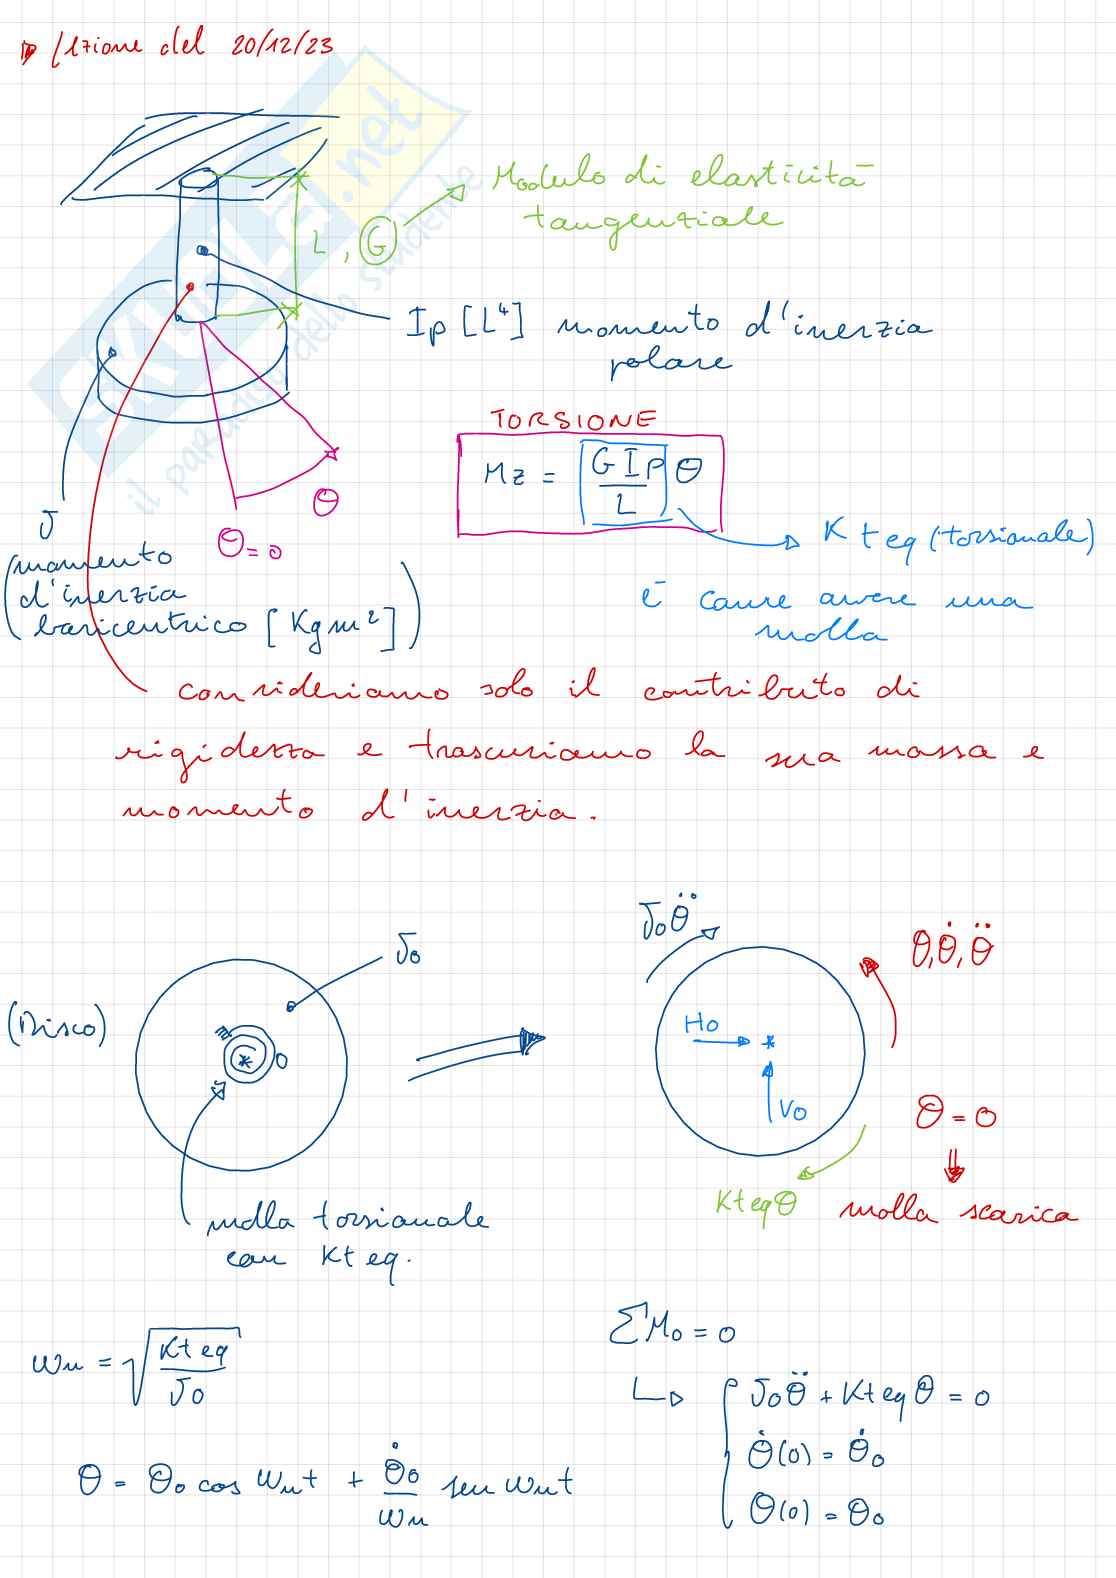 Lezione del 20/12/23
Modulo di elasticità
tangenziale
L, G
Ip [L⁴] momento d'inerzia
polare
TORSIONE
Mz = GIp/L θ
Kteq (torsionale)
è come avere una
molla
θ
θ=0
J
(momento
d'inerzia
baricentrico [Kgm²])
consideriamo solo il contributo di
rigidezza e trascuriamo la sua massa e
momento d'inerzia.
(Disco)
Jo
O
molla torsionale
con Kteq.
Joθ̈
θ, θ̇, θ̈
Ho
Vo
Kteqθ
θ=0
⇓
molla scarica
ωn = √(Kteq/Jo)
θ = θo cos ωnt + θ̇o/ωn sen ωnt
ΣMo = 0
Joθ̈ + Kteqθ = 0
θ̇(0) = θ̇o
θ(0) = θo
SKUOLA.net
il paradiso dello studente